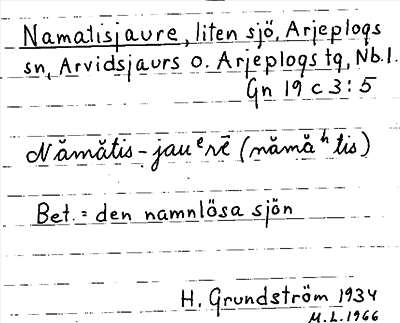 Namatisjaure, liten sjö, Arjeplogs
sn, Arvidsjaurs o. Arjeplogs tg, Nb.l.
Gn 19 c 3:5
Nămătis-jauᵉrē (nămăʰtis)
Bet. = den namnlösa sjön
H. Grundström 1934
M.L. 1966